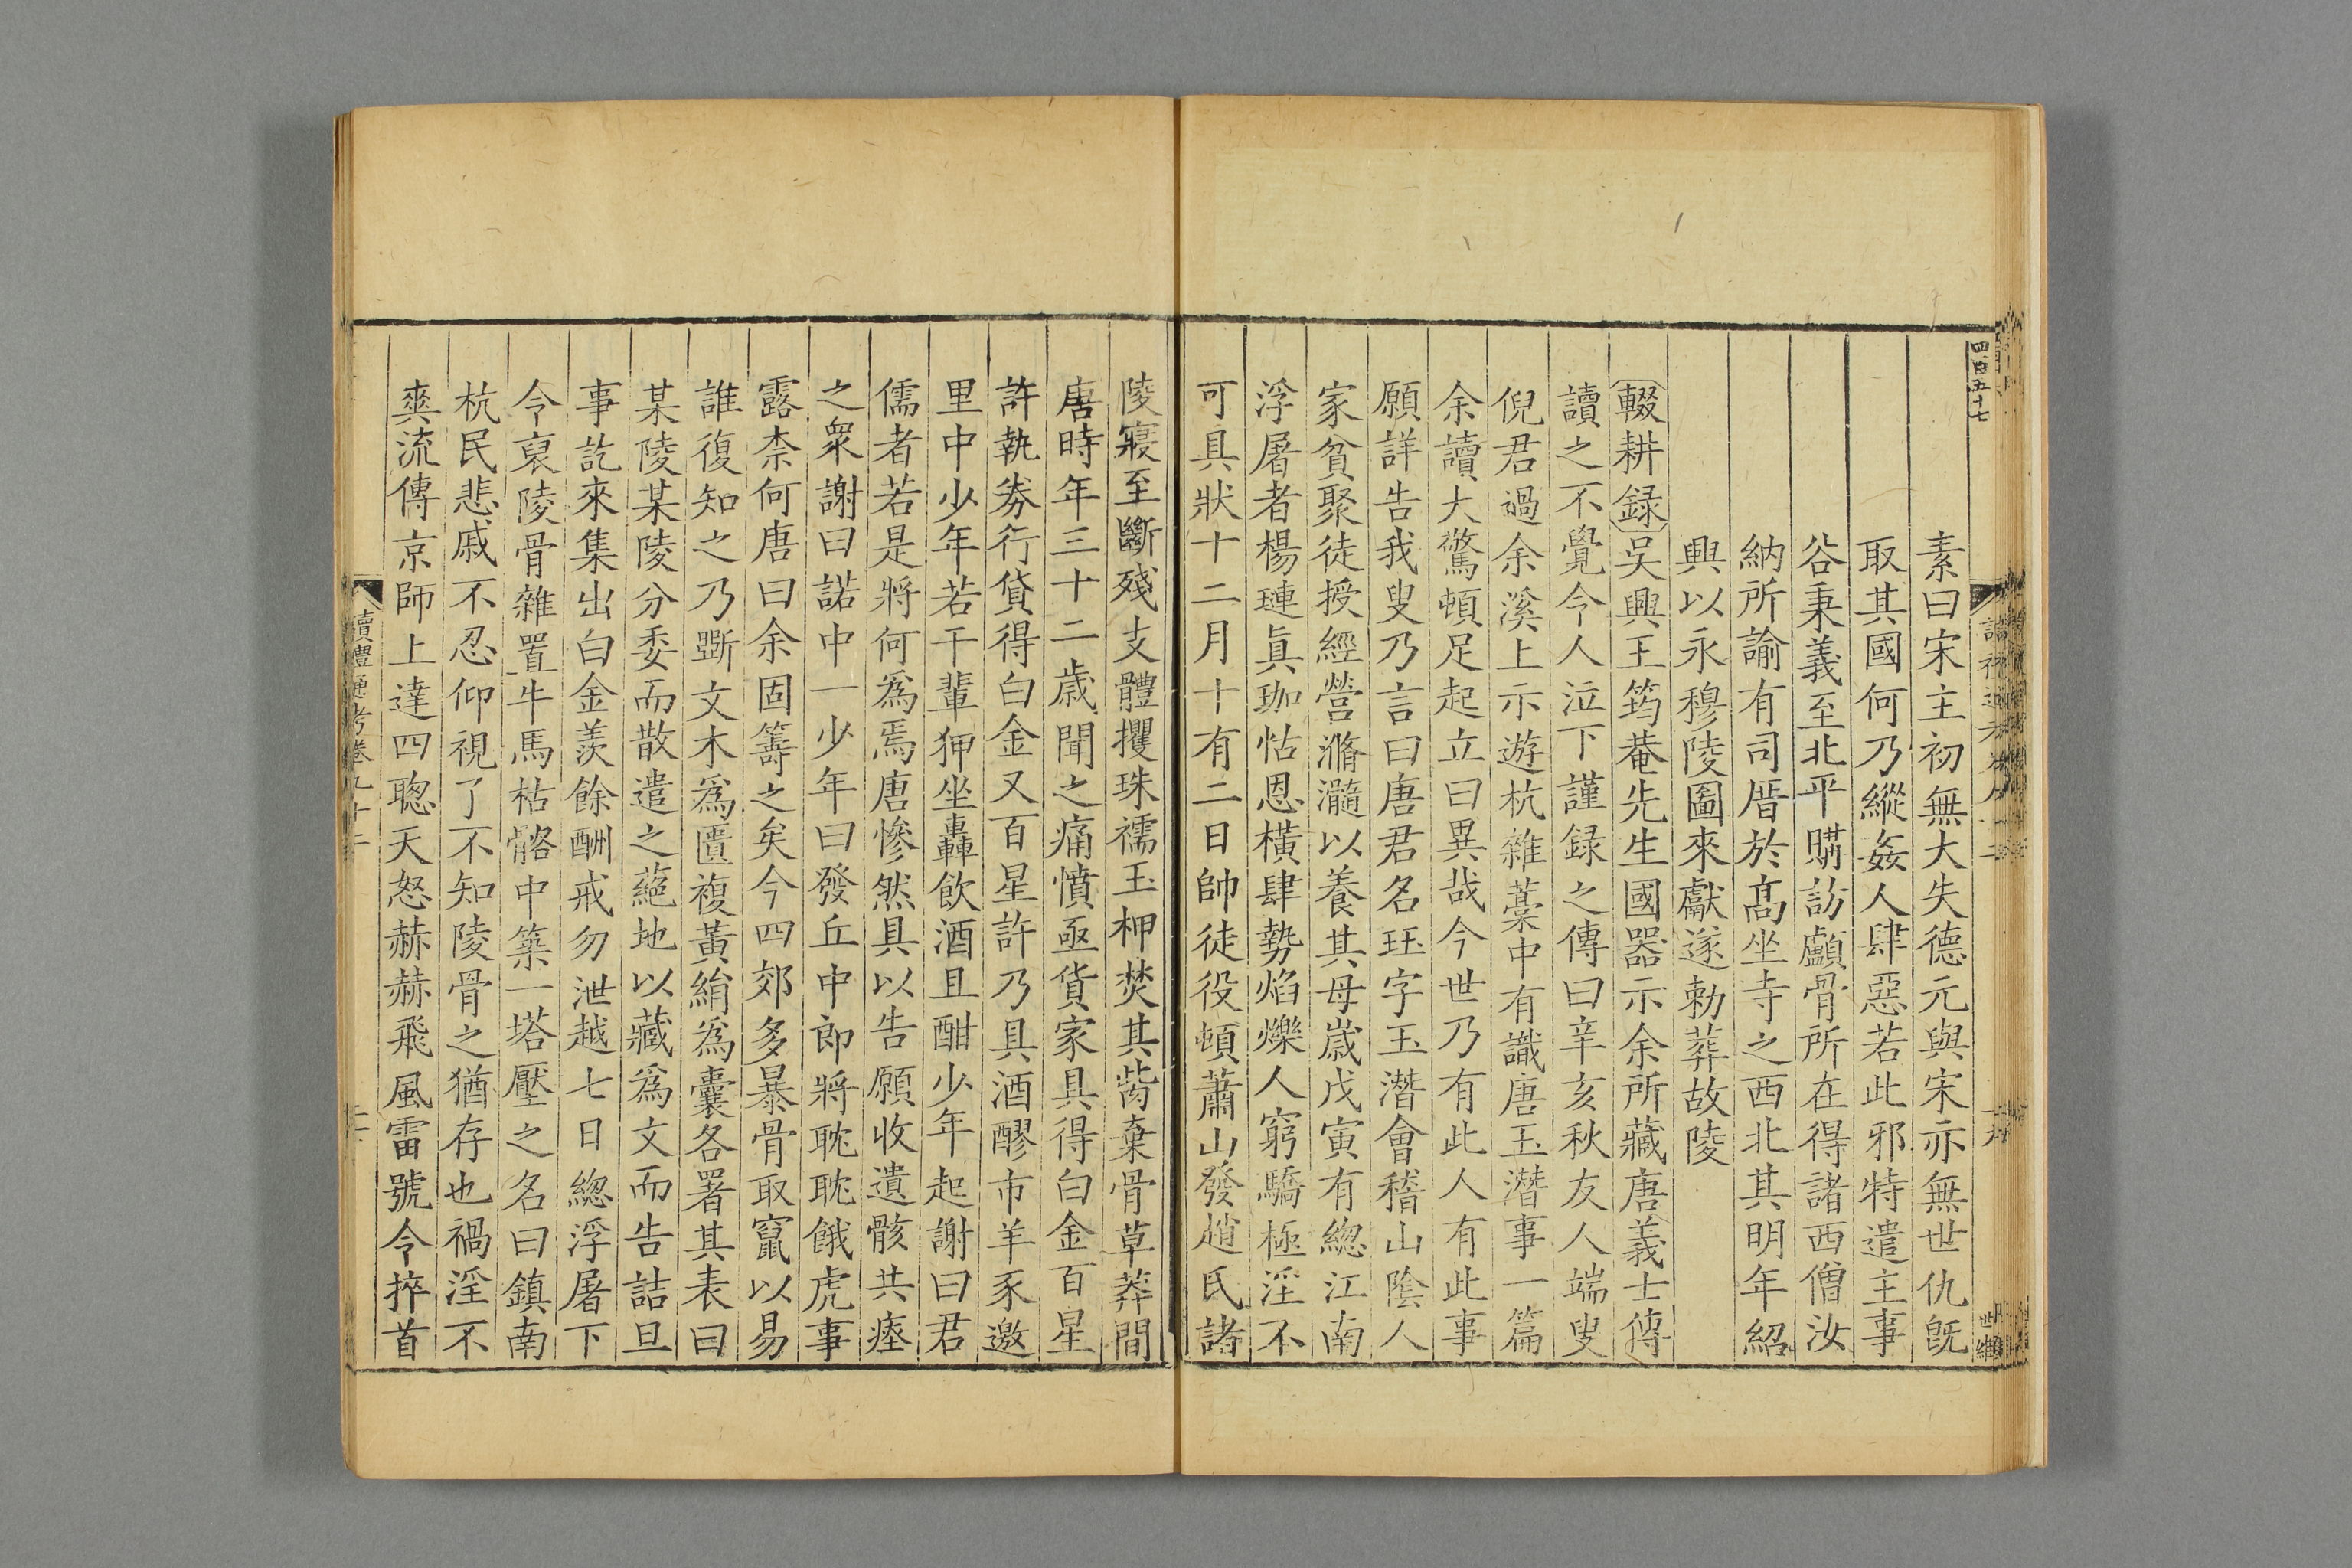 四百五十七
素曰宋主初無大失德元與宋亦無世仇旣
取其國何乃縱姦人肆惡若此邪特遣主事
谷秉義至北平購訪顱骨所在得諸西僧汝
納所諭有司厝於髙坐寺之西北其明年紹
興以永穆陵圖來獻遂勅葬故陵
輟耕録吴興王筠菴先生國器示余所藏唐義士傳
讀之不覺令人泣下謹録之傳曰辛亥秋友人端叟
倪君過余溪上示遊杭雜藁中有識唐玉潛事一篇
余讀大驚頓足起立曰異哉今世乃有此人有此事
願詳告我叟乃言曰唐君名珏字玉潛會稽山隂人
家貧聚徒授經營滫瀡以養其母嵗戊寅有緫江南
浮屠者楊璉眞珈怙恩橫肆勢焰爍人窮驕極淫不
可具狀十二月十有二日帥徒役頓蕭山發趙氏諸
陵寢至斷殘支體攫珠襦玉柙焚其胔棄骨草莽間
唐時年三十二歳聞之痛憤亟貨家具得白金百星
許執券行貸得白金又百星許乃具酒醪市羊豕邀
里中少年若干輩狎坐轟飮酒且酣少年起謝曰君
儒者若是將何爲焉唐慘然具以告願收遺骸共瘞
之衆謝曰諾中一少年曰發丘中郎將眈眈餓虎事
露柰何唐曰余固籌之矣今四郊多暴骨取竄以易
誰復知之乃斲文木爲匱複黃絹爲囊各署其表曰
某陵某陵分委而散遣之蕝地以藏爲文而告詰旦
事訖來集出白金羨餘酬戒勿泄越七日緫浮屠下
令裒陵骨雜置牛馬枯骼中築一塔壓之名曰鎮南
杭民悲戚不忍仰視了不知陵骨之猶存也禍淫不
爽流傳京師上達四聦天怒赫赫飛風雷號令捽首
讀禮通考卷九十二